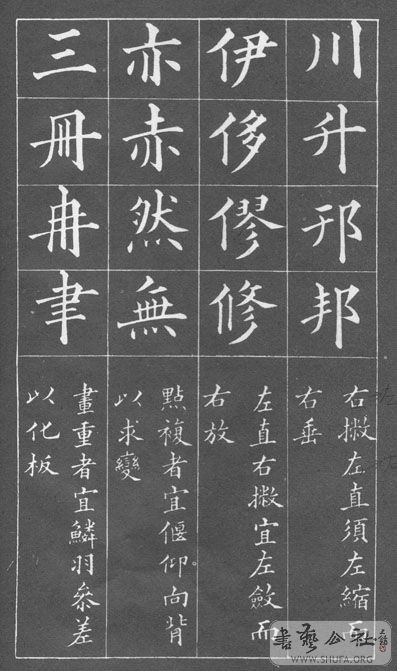 川升邢邦
右撇左直須左縮而
右垂
伊侈僇修
左直右撇宜左斂而
右放
亦赤然無
點複者宜偃仰向背
以求變
三冊冉聿
畫重者宜鱗羽參差
以化板
書藝公社
WWW.SHUFA.ORG